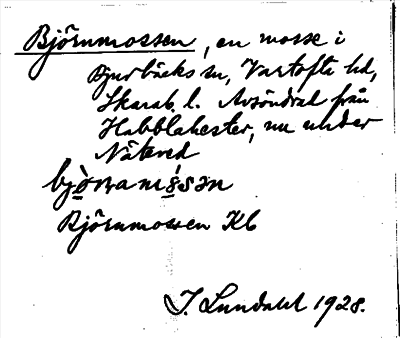 Björnmossen, en mosse i
Bjurbäcks sn, Vartofta hd,
Skarab. l. Avsöndrad från
Habblahester, nu under
Nätered
bjò̱ṇamǻ̱sən
Björnmossen Kb
J. Lundahl 1928.